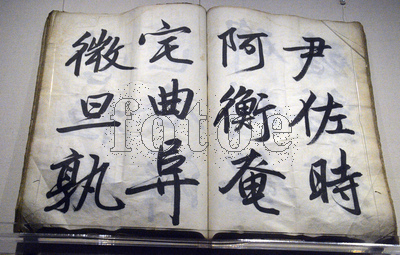 尹佐時
阿衡奄
宅曲阜
微旦孰
fotoe